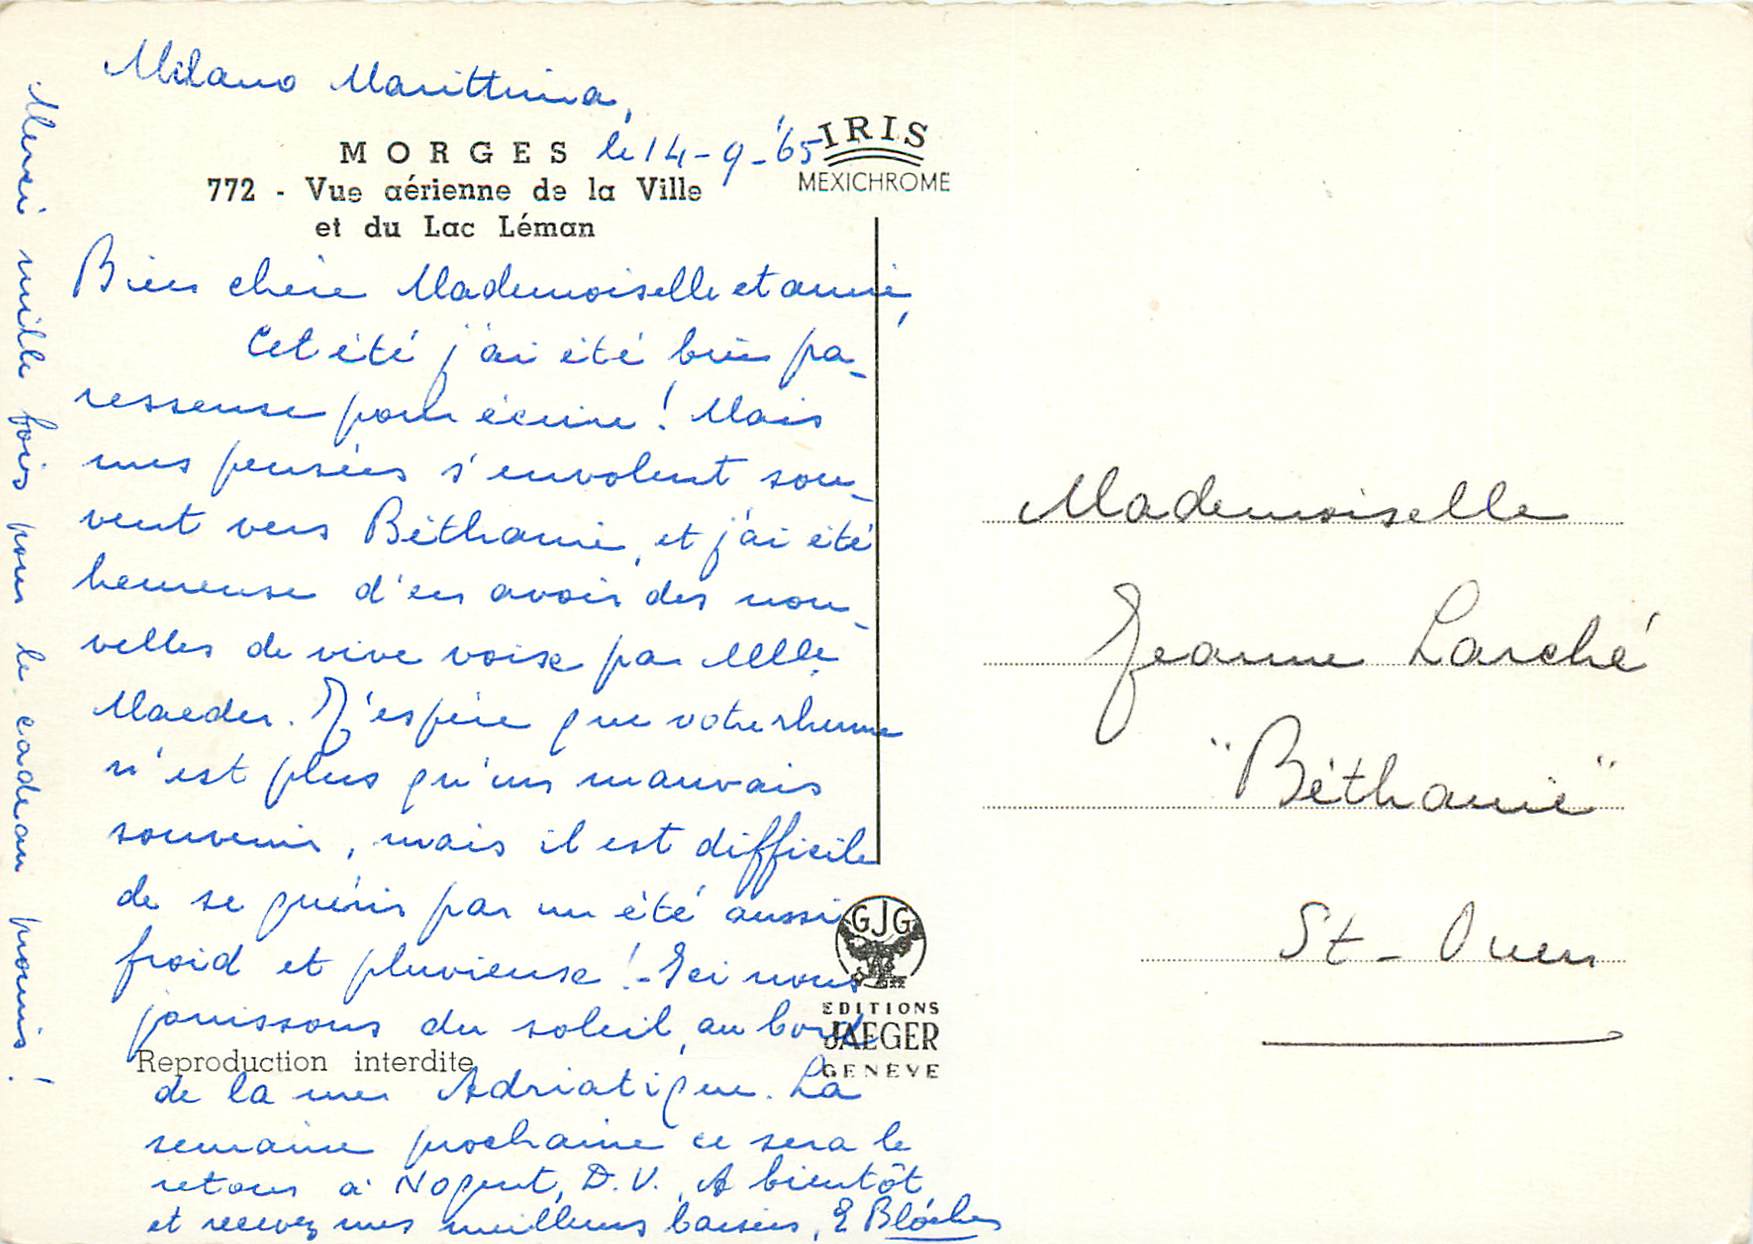 Milano Marittima,
le 14-9-'65
MORGES
772 - Vue aérienne de la Ville
et du Lac Léman
IRIS
MEXICHROME
Bien chère Mademoiselle et amie,
Cet été j'ai été bien pa-
resseuse pour écrire! Mais
mes pensées s'envolent sou-
vent vers Béthanie, et j'ai été
heureuse d'en avoir des nou-
velles de vive voix par Mlle
Maeder. J'espère que votre rhume
n'est plus qu'un mauvais
souvenir, mais il est difficile
de se guérir par un été aussi
froid et pluvieuse! - Ici nous
jouissons du soleil, au bord
de la mer Adriatique. La
semaine prochaine ce sera le
retour à Nogent, D.V. A bientôt
et recevez mes meilleurs baisers, E
Merci mille fois pour le cadeau promis!
Reproduction interdite
GJG
EDITIONS
JAEGER
GENÈVE
Mademoiselle
Jeanne Larché
"Béthanie"
St-Ouen